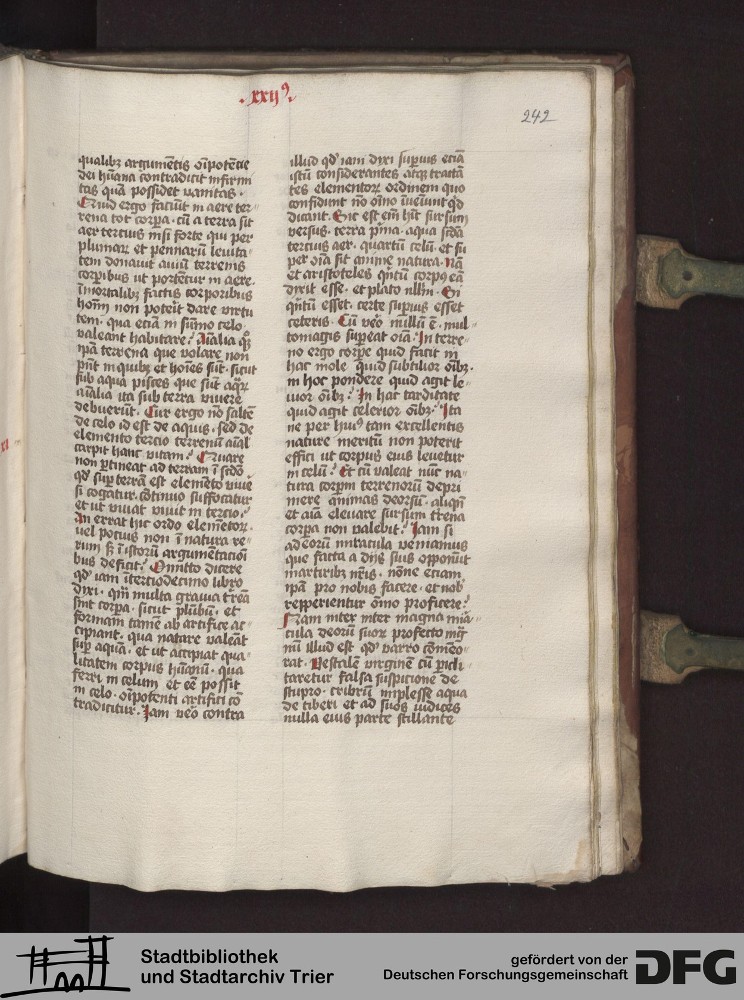 .xxijꝰ.
242
qualibꝫ argumētis oīpotēcie
dei hūana contradicit infirmi
tas quā possidet vanitas.
Quid ergo faciūt in aere ter
rena tot corpa. cū a terra sit
aer tercius nisi forte qui per
plumaꝝ et pennarū leuita
tem donauit auiū terrenis
corpibus ut portētur in aere.
īmortalibꝫ factis corporibus
hoīm non poterit dare virtu
tem. qua eciā in sūmo celo
valeant habitare? Aīalia qꝫ
ipā terrena que volare non
pn̄t in quibꝫ et hoīes sūt. sicut
sub aqua pisces que sūt aqꝝ
aīalia ita sub terra viuere
debuerūt. Cur ergo nō saltē
de celo id est de aquis. sed de
elemento tercio terrenū aīal
carpit hanc vitam? Quare
non ꝑtineat ad terram ī scdō
qd̓ sup terrā est elemēto viue
si cogatur. cōtinuo suffocatur
et ut viuat viuit in tercio?
An errat hic ordo elemētoꝝ.
vel potius non ī natura re
rum sꝫ ī istorū argumētacioī
bus deficit? Omitto dicere
qd̓ iam ītertiodecimo libro
dixi. qm̄ multa grauia trēa
sint corpa. sicut plūbū. et
formam tamē ab artifice ac
cipiant. qua natare valeāt
sup aquā. et ut accipiat qua
litatem corpus hūanū. qua
ferri in celum et eē possit
in celo. oīpotenti artifici cō
tradicitur. Iam vēo contra
illud qd̓ iam dixi supius eciā
istū considerantes atqꝫ tractā
tes elementoꝝ ordinem quo
confidunt nō oīno inueniūt qd̓
dicant. Sic est em̄ hīc sursum
versus. terra pīma. aqua scdā
tercius aer. quartū celū. et su
per oīa sit anime natura. Nā
et aristoteles qn̄tū corpꝰ eā
dixit esse. et plato nllm̄. Si
qn̄tū esset. certe supius esset
ceteris. Cū vēo nullū ē. mul
tomagis supeat oīa. In terre
no ergo corpe quid facit in
hac mole quid subtilior oībꝫ.
in hoc pondere quid agit le
uior oībꝫ? In hac tarditate
quid agit celerior oībꝫ? Ita
ne per huiꝰ tam excellentis
nature meritū non poterit
effici ut corpus eius leuetur
in celū? Et cū valeat nūc na
tura corpm terrenorū depri
mere qnimas deorsū. aliqn̄
et aīa eleuare sursum trēna
corpa non valebit? Iam si
ad eorū miracula veniamus
que facta a dijs suis opponūt
martiribꝫ nr̄is. nōne eciam
ipā pro nobis facere. et nob̓
repperientur oīno proficere?
Nam inter inter magna mīa
cula deorū suoꝝ profecto mg̅
nū illud est qd̓ varro cōmēo
rat. Vestalē virginē cū picli
taretur falsa suspicione de
stupro. cribrū implesse aqua
de tiberi et ad suos iudices
nulla eius parte stillante
Stadtbibliothek
und Stadtarchiv Trier
gefördert von der
Deutschen Forschungsgemeinschaft
DFG